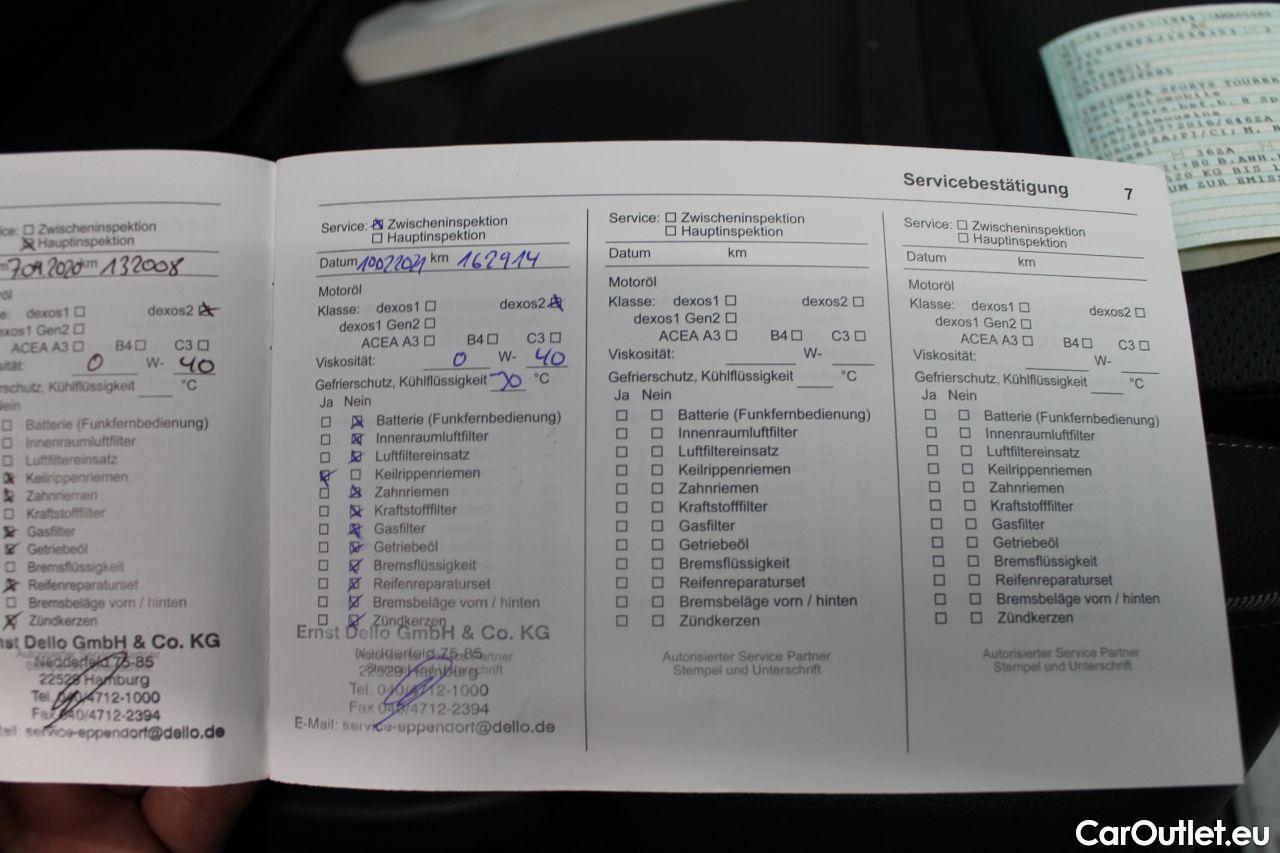 Servicebestätigung 7
ice: ☐ Zwischeninspektion
☒ Hauptinspektion
7.09.2020 km 132008
dexos1 ☐ dexos2 ☒
exos1 Gen2 ☐
ACEA A3 ☐ B4 ☐ C3 ☐
0 W- 40
rschutz, Kühlflüssigkeit °C
Nein
☐ Batterie (Funkfernbedienung)
☐ Innenraumluftfilter
☐ Luftfiltereinsatz
☒ Keilrippenriemen
☒ Zahnriemen
☐ Kraftstofffilter
☒ Gasfilter
☒ Getriebeöl
☐ Bremsflüssigkeit
☒ Reifenreparaturset
☐ Bremsbeläge vorn / hinten
☒ Zündkerzen
nst Dello GmbH & Co. KG
Nedderfeld 75-85
22529 Hamburg
Tel. 040/4712-1000
Fax 040/4712-2394
ail: service-eppendorf@dello.de
Service: ☒ Zwischeninspektion
☐ Hauptinspektion
Datum 10022021 km 162914
Motoröl
Klasse: dexos1 ☐ dexos2 ☒
dexos1 Gen2 ☐
ACEA A3 ☐ B4 ☐ C3 ☐
Viskosität: 0 W- 40
Gefrierschutz, Kühlflüssigkeit -30 °C
Ja Nein
☐ ☒ Batterie (Funkfernbedienung)
☐ ☒ Innenraumluftfilter
☐ ☒ Luftfiltereinsatz
☒ ☐ Keilrippenriemen
☐ ☒ Zahnriemen
☐ ☒ Kraftstofffilter
☐ ☒ Gasfilter
☐ ☒ Getriebeöl
☐ ☒ Bremsflüssigkeit
☐ ☒ Reifenreparaturset
☐ ☒ Bremsbeläge vorn / hinten
☐ ☒ Zündkerzen
Ernst Dello GmbH & Co. KG
Nedderfeld 75-85
22529 Hamburg
Tel. 040/4712-1000
Fax 040/4712-2394
E-Mail: service-eppendorf@dello.de
Service: ☐ Zwischeninspektion
☐ Hauptinspektion
Datum km
Motoröl
Klasse: dexos1 ☐ dexos2 ☐
dexos1 Gen2 ☐
ACEA A3 ☐ B4 ☐ C3 ☐
Viskosität: W-
Gefrierschutz, Kühlflüssigkeit °C
Ja Nein
☐ ☐ Batterie (Funkfernbedienung)
☐ ☐ Innenraumluftfilter
☐ ☐ Luftfiltereinsatz
☐ ☐ Keilrippenriemen
☐ ☐ Zahnriemen
☐ ☐ Kraftstofffilter
☐ ☐ Gasfilter
☐ ☐ Getriebeöl
☐ ☐ Bremsflüssigkeit
☐ ☐ Reifenreparaturset
☐ ☐ Bremsbeläge vorn / hinten
☐ ☐ Zündkerzen
Autorisierter Service Partner
Stempel und Unterschrift
Service: ☐ Zwischeninspektion
☐ Hauptinspektion
Datum km
Motoröl
Klasse: dexos1 ☐ dexos2 ☐
dexos1 Gen2 ☐
ACEA A3 ☐ B4 ☐ C3 ☐
Viskosität: W-
Gefrierschutz, Kühlflüssigkeit °C
Ja Nein
☐ ☐ Batterie (Funkfernbedienung)
☐ ☐ Innenraumluftfilter
☐ ☐ Luftfiltereinsatz
☐ ☐ Keilrippenriemen
☐ ☐ Zahnriemen
☐ ☐ Kraftstofffilter
☐ ☐ Gasfilter
☐ ☐ Getriebeöl
☐ ☐ Bremsflüssigkeit
☐ ☐ Reifenreparaturset
☐ ☐ Bremsbeläge vorn / hinten
☐ ☐ Zündkerzen
Autorisierter Service Partner
Stempel und Unterschrift
SPORTS TOURER
CarOutlet.eu